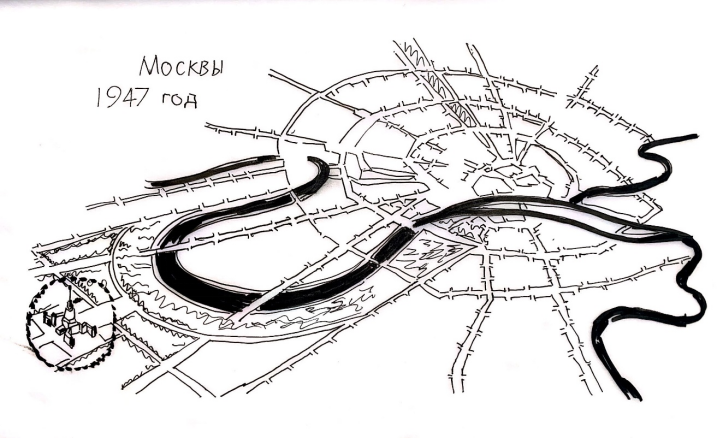 Москвы
1947 год